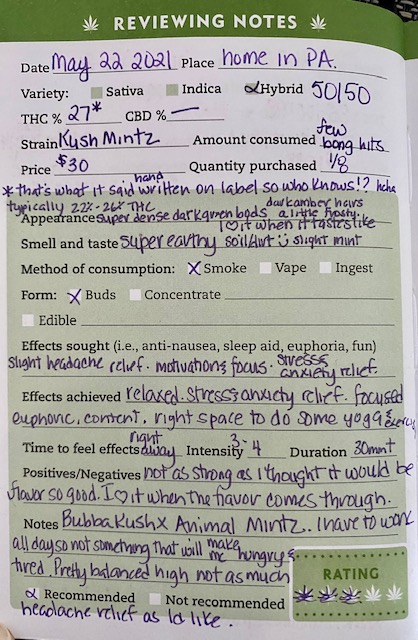 REVIEWING NOTES
Date May 22 2021 Place home in PA.
Variety: Sativa Indica Hybrid 50/50
THC % 27* CBD % —
Strain Kush Mintz Amount consumed few bong hits
Price $30 Quantity purchased 1/8
*that's what it said hand written on label so who knows!? haha
typically 22%-26% THC
Appearance super dense dark green buds dark amber hairs a little frosty.
Smell and taste super earthy soil/dirt I ♡ it when it tastes like slight mint
Method of consumption: X Smoke Vape Ingest
Form: X Buds Concentrate
Edible
Effects sought (i.e., anti-nausea, sleep aid, euphoria, fun)
slight headache relief. motivation & focus. stress & anxiety relief.
Effects achieved relaxed. stress & anxiety relief. focused
euphoric, content, right space to do some yoga & exercise
Time to feel effects right away Intensity 3-4 Duration 30mn+
Positives/Negatives not as strong as I thought it would be
flavor so good. I ♡ it when the flavor comes through.
Notes Bubba Kush x Animal Mintz.. I have to work
all day so not something that will make me hungry &
tired. Pretty balanced high not as much
RATING
Recommended Not recommended
headache relief as I'd like.